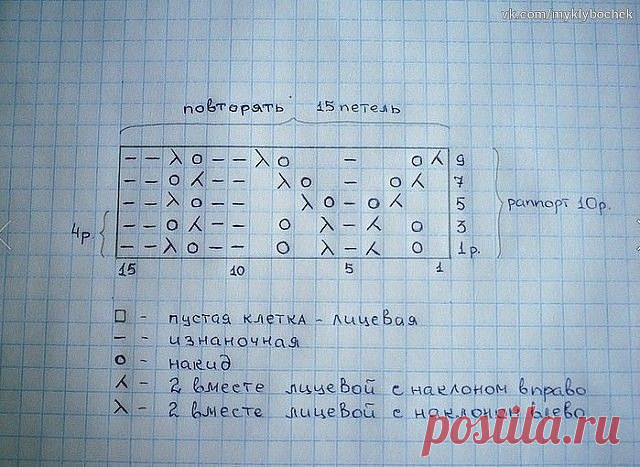 vk.com/myklybochek
повторять 15 петель
− − λ o − − λ o − o ⅄ 9
− − o ⅄ − − λ o − o ⅄ 7
− − λ o − − λ o − o ⅄ 5 раппорт 10р.
4р. − − o ⅄ − − o λ − ⅄ o 3
− − λ o − − o λ − ⅄ o 1р.
15 10 5 1
□ - пустая клетка - лицевая
− - изнаночная
o - накид
⅄ - 2 вместе лицевой с наклоном вправо
λ - 2 вместе лицевой с наклоном влево
postila.ru